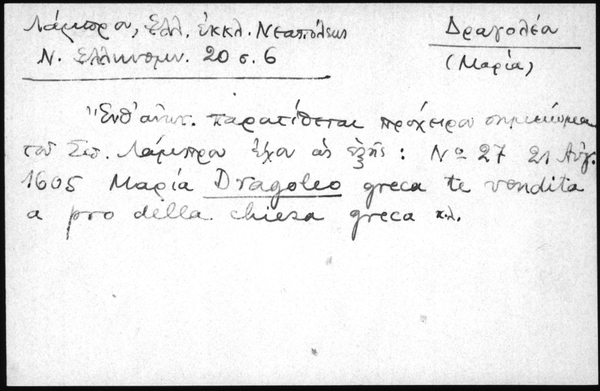 Λάμπρου, Ἑλλ. ἐκκλ. Νεαπόλεως
Ν. Ἑλληνομν. 20 σ. 6
Δραγολέα
(Μαρία)
Ἐνθ' ἀνωτ. παρατίθεται πρόχειρον σημείωμα
τοῦ Σπ. Λάμπρου ἔχον ὡς ἑξῆς: Νο 27 21 Αὐγ.
1605 Μαρία Dragoleo greca te vendita
a pro della chiesa greca κλ.